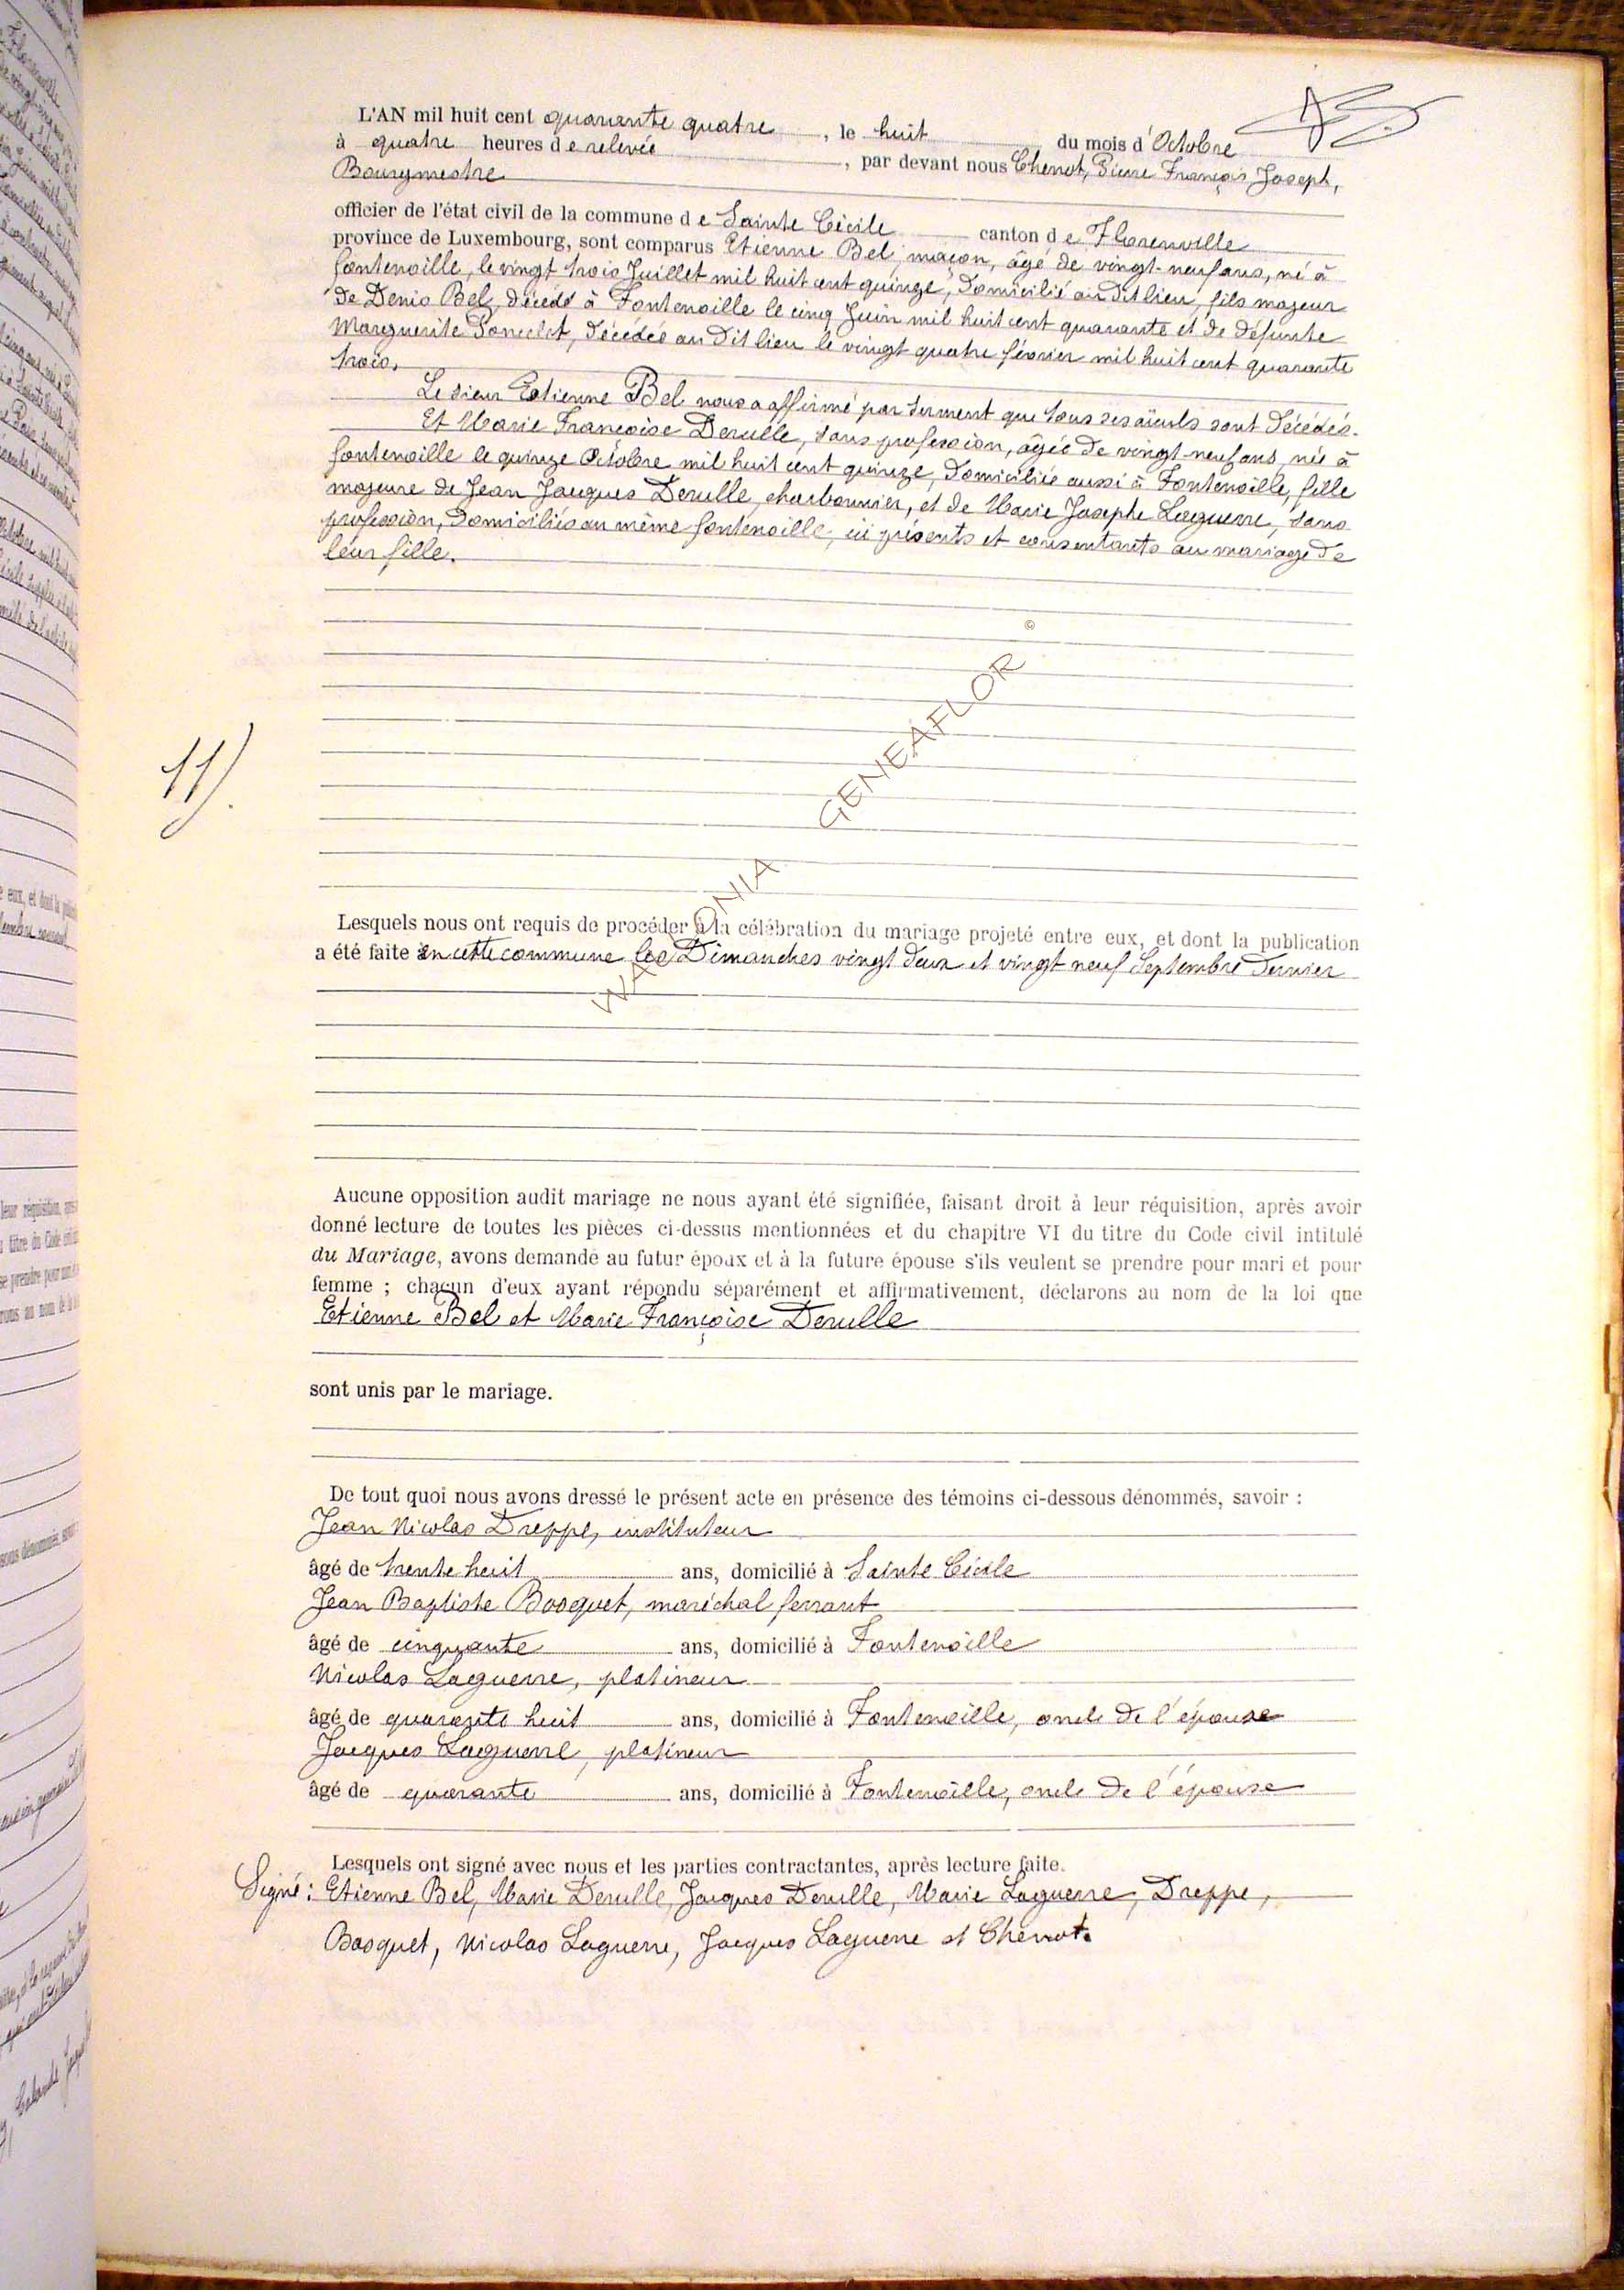 L'AN mil huit cent quarante quatre, le huit du mois d'Octobre
à quatre heures de relevée, par devant nous Chenot, Pierre François Joseph,
Bourgmestre
officier de l'état civil de la commune de Sainte Cécile canton de Florenville
province de Luxembourg, sont comparus Etienne Bel, maçon, âgé de vingt-neuf ans, né à
fontenoille, le vingt trois Juillet mil huit cent quinze, domicilié au dit lieu, fils majeur
de Denis Bel, décédé à Fontenoille le cinq Juin mil huit cent quarante et de défunte
Marguerite Poncelet, décédée au dit lieu le vingt quatre février mil huit cent quarante
trois.
Le sieur Etienne Bel nous a affirmé par serment que tous ses aïeuls sont décédés.
Et Marie Françoise Derulle, sans profession, âgée de vingt-neuf ans, née à
fontenoille le quinze Octobre mil huit cent quinze, domiciliée aussi à Fontenoille, fille
majeure de Jean Jacques Derulle, charbonnier, et de Marie Josephe Laguerre, sans
profession, domiciliés au même fontenoille, ici présents et consentants au mariage de
leur fille.
11).
WALLONIA GENEAFLOR ©
Lesquels nous ont requis de procéder à la célébration du mariage projeté entre eux, et dont la publication
a été faite en cette commune les Dimanches vingt deux et vingt neuf Septembre dernier
Aucune opposition audit mariage ne nous ayant été signifiée, faisant droit à leur réquisition, après avoir
donné lecture de toutes les pièces ci-dessus mentionnées et du chapitre VI du titre du Code civil intitulé
du Mariage, avons demandé au futur époux et à la future épouse s'ils veulent se prendre pour mari et pour
femme ; chacun d'eux ayant répondu séparément et affirmativement, déclarons au nom de la loi que
Etienne Bel et Marie Françoise Derulle
sont unis par le mariage.
De tout quoi nous avons dressé le présent acte en présence des témoins ci-dessous dénommés, savoir :
Jean Nicolas Dreppe, instituteur
âgé de trente huit ans, domicilié à Sainte Cécile
Jean Baptiste Bosquet, maréchal ferrant
âgé de cinquante ans, domicilié à Fontenoille
Nicolas Laguerre, platineur
âgé de quarante huit ans, domicilié à Fontenoille, oncle de l'épouse
Jacques Laguerre, platineur
âgé de quarante ans, domicilié à Fontenoille, oncle de l'épouse
Lesquels ont signé avec nous et les parties contractantes, après lecture faite.
Signé : Etienne Bel, Marie Derulle, Jacques Derulle, Marie Laguerre, Dreppe,
Bosquet, Nicolas Laguerre, Jacques Laguerre et Chenot.